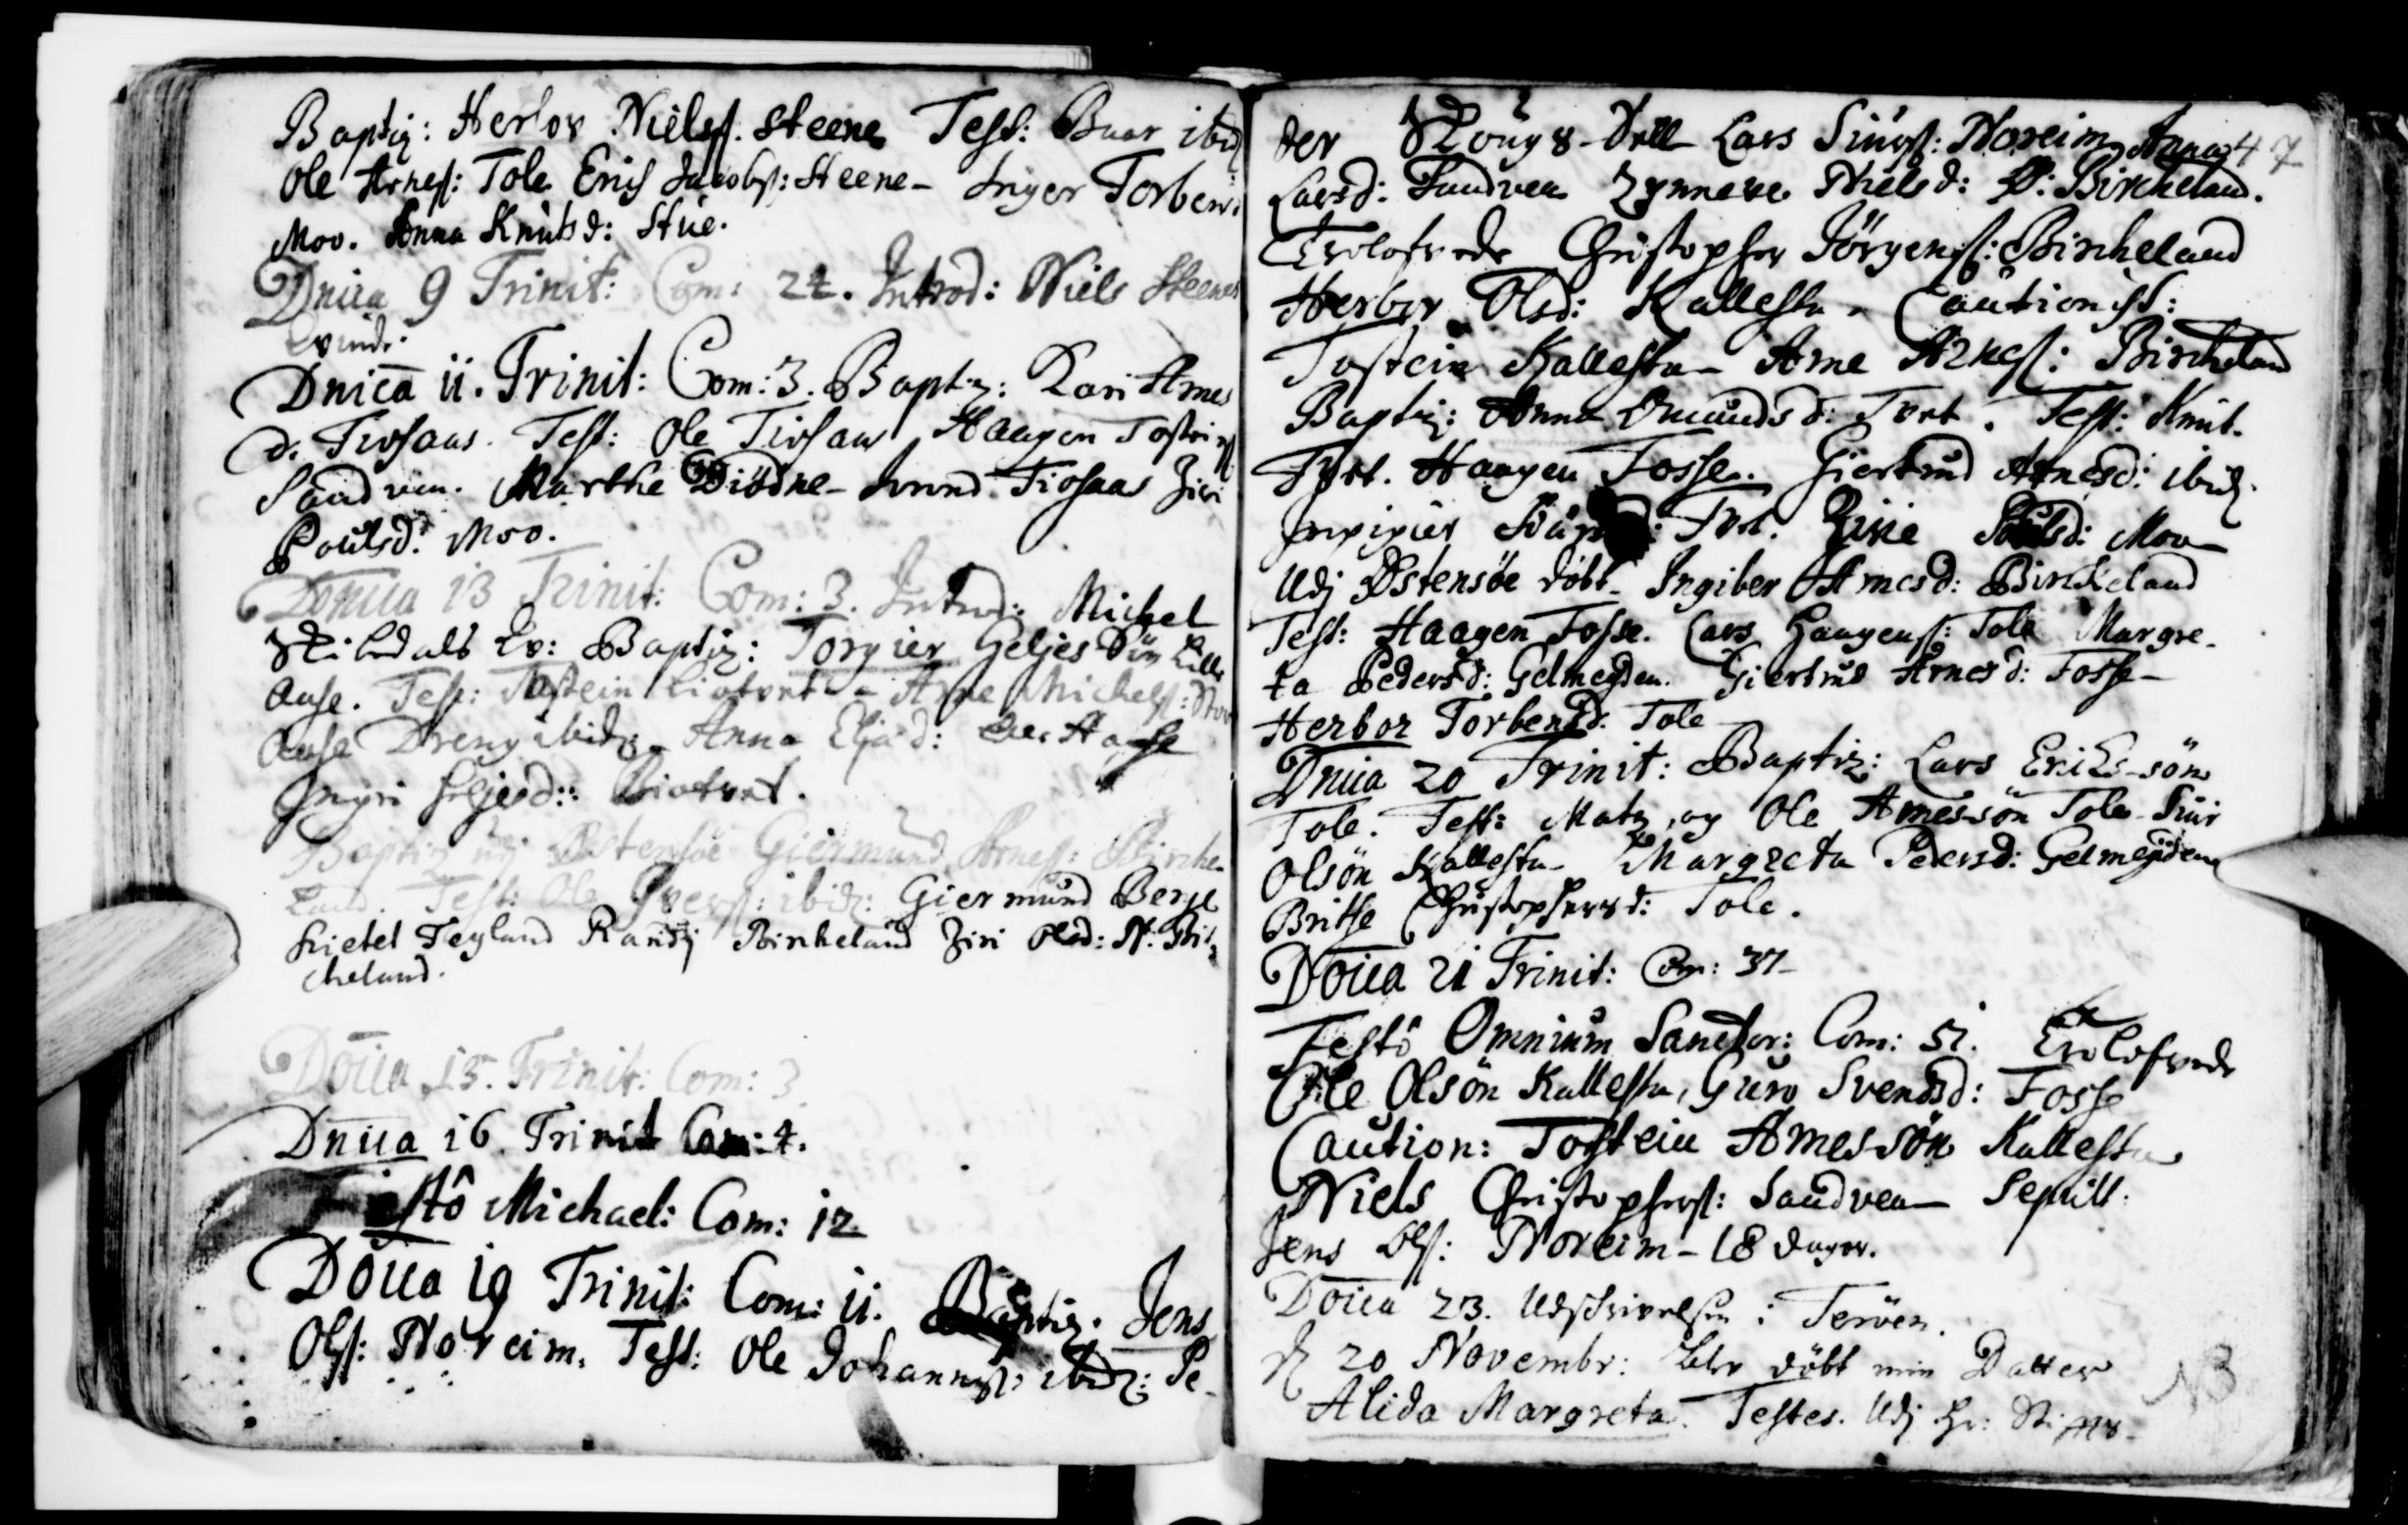 Baptiz: Herlov Nielsß. Steene Test: Baar ibid
Ole Arneß: Tole Erich Jacobß: Steene - Inger Torbens
Moo. Anna Knutsd: Stue.
Dnica 9 Trinit: Com: 22. Introd: Niels Steenes
Qvinde.
Dnica ii. Trinit: Com: 3. Baptiz: Kari Arnes
d. Tiosaas. Test: Ole Tiosaas Haagen Tostens
Sandven. Marthe Diödne - Tiosaas Ziri
Poulsd: Moo.
Dnica 13 Trinit: Com: 3. Introd: Michel
Baptiz: Torgier Geljes Sön
Aase. Test: Tostein - Arne Michelß:
Aase Dreng ibid. Anna Eljæd: Aase
Ingri Heljesd:
Baptiz udj Østensöe Giermund Arneß: Birche-
land. Test: Ole Iverß: ibid: Giermund Berge
Kietel Tegland Randj Bircheland Ziri Olsd: N: Bir
cheland.
Doica 15. Trinit: Com: 3
Dnica 16 Trinit Com: 4.
Festô Michael: Com: 12
Doica 19 Trinit: Com: ii. Baptiz. Jens
Olß: Noreim. Test: Ole Johannß: ibid: Pe-
47
der Lars Siurß: Noreim Anna
Larsd: Sandven Zynneve Nielsd: N: Bircheland.
Trolofvede Christopher Jörgenß: Bircheland
Herbor Olsd: Kallestu. Cautionist:
Tostein Kallestu - Arne Arneß: Bircheland
Baptiz: Anna Omundsd: Tvet. Test: Knut
Tvet. Haagen Fosse. Giertrud Arnesd: ibid.
Tvet. Zirie Poulsd: Moo
Udj Østensöe döbt - Ingiber Arnesd: Bircheland
Test: Haagen Fosse. Lars Haagenß: Tole Margre-
ta Pedersd: Gelmeyden. Giertrud Arnesd: Fosse -
Herbor Torbensd. Tole
Dnica 20 Trinit: Baptiz: Lars Erichs-sön
Tole. Test: Matz, og Ole Arnessön Tole - Siur
Olsön Kallestu - Margreta Pedersd: Gelmeyden
Brithe Christophersd: Tole.
Doica 21 Trinit: Com: 37 -
Festô Omnium Sanctor: Com: 51. Trolofvede
Ole Olsön Kallestu, Guro Svendsd: Fosse
Caution: Tostein Arnessön Kallestu
Niels Christopherß: Sandven - Sepult.
Jens Olß: Noreim - 18 dager.
Doica 23. Udschrivelsen i Teröen.
20 Novembr: blev döbt min Datter
Alida Margreta. Testes. Udj Hr:
NB